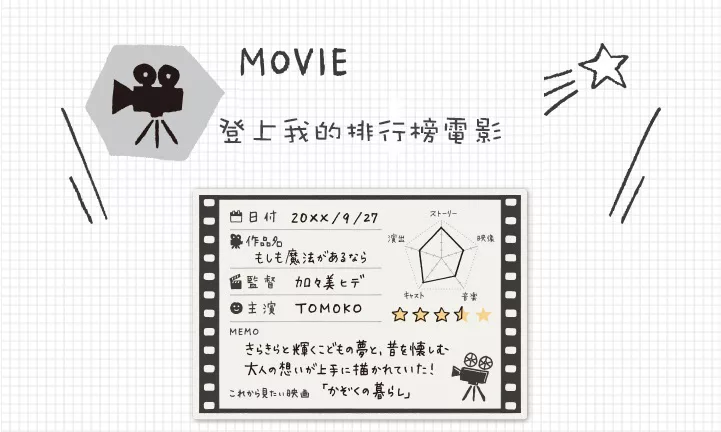 MOVIE
登上我的排行榜電影
日付 20XX/9/27
作品名
もしも魔法があるなら
監督 加々美ヒデ
主演 TOMOKO
ストーリー
演出
映像
キャスト
音楽
MEMO
きらきらと輝くこどもの夢と、昔を懐しむ
大人の想いが上手に描かれていた!
これから見たい映画 「かぞくの暮らし」